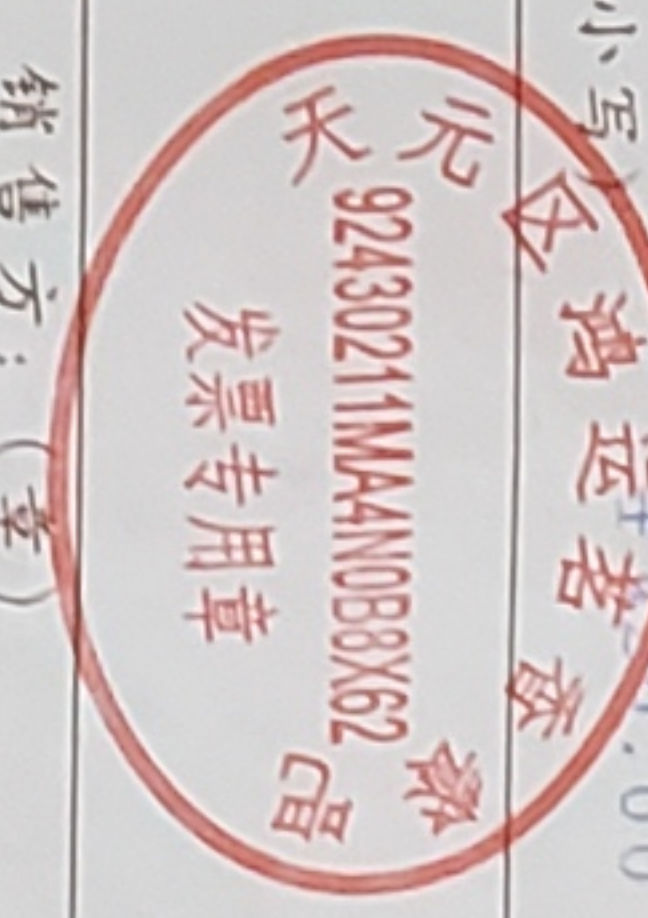 小写）
天元区鸿运茗香
92430211MA4N0B8X62
发票专用章
销售方：（章）